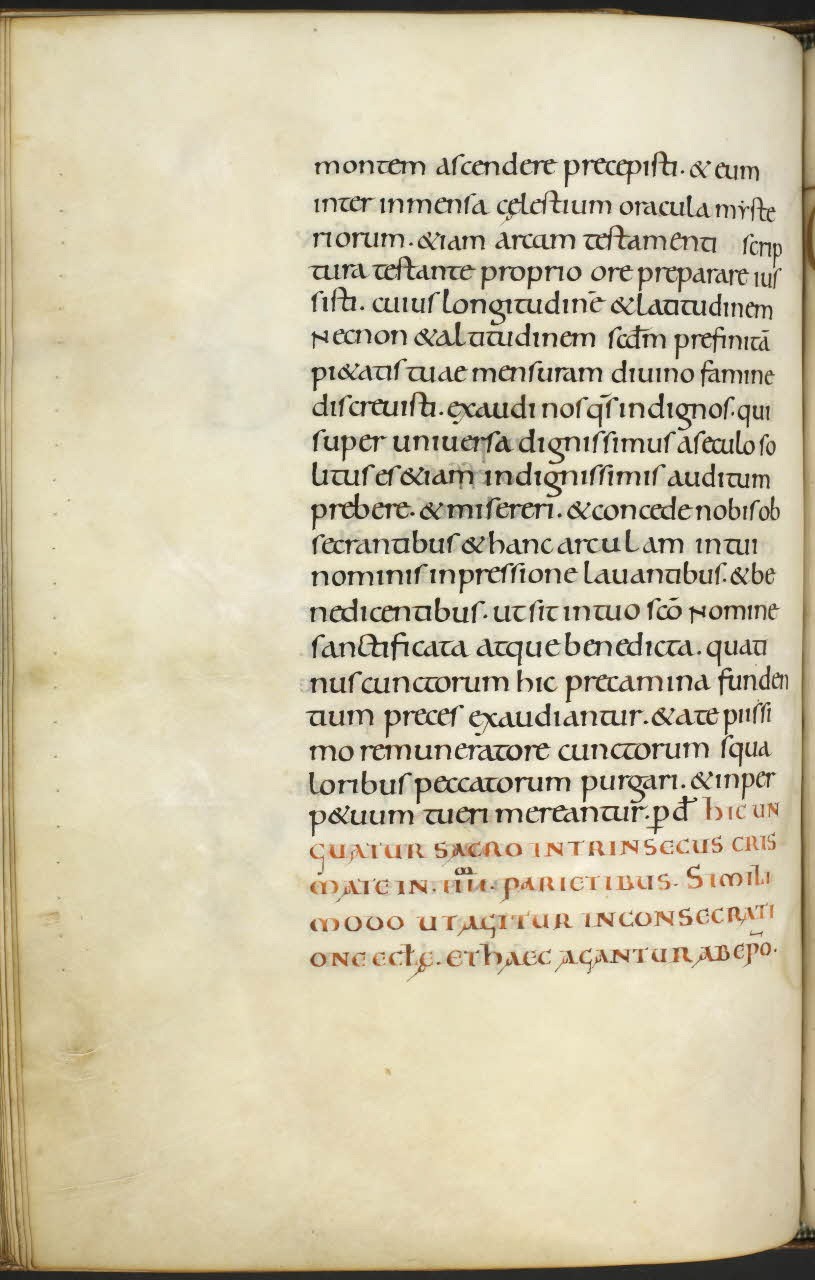 montem ascendere precepisti. & eum
inter inmensa cęlestium oracula myste
riorum. &iam arcam testamenti scrip
tura testante proprio ore preparare ius
sisti. cuius longitudinē & latitudinem
Necnon & altitudinem scdm̄ prefinitā
pi&atis tuae mensuram diuino famine
discreuisti. exaudi nos qs̄ indignos. qui
super uniuersa dignissimus aseculo so
litus es &iam indignissimis auditum
prebere. & misereri. & concede nobis ob
secrantibus & hanc arculam in tui
nominis inpressione lauantibus. & be
nedicentibus. ut sit in tuo scō Nomine
sanctificata atque benedicta. quati
nus cunctorum hic precamina funden
tium preces exaudiantur. & ate piissi
mo remuneratore cunctorum squa
loribus peccatorum purgari. & inper
p&uum tueri mereantur. p dˉ hic un
guatur sacro intrinsecus cris
mate in. IIIIᵐ. parietibus. Simili
modo ut agitur in consecrati
one eclę. et haec agantur ab ep̄o.